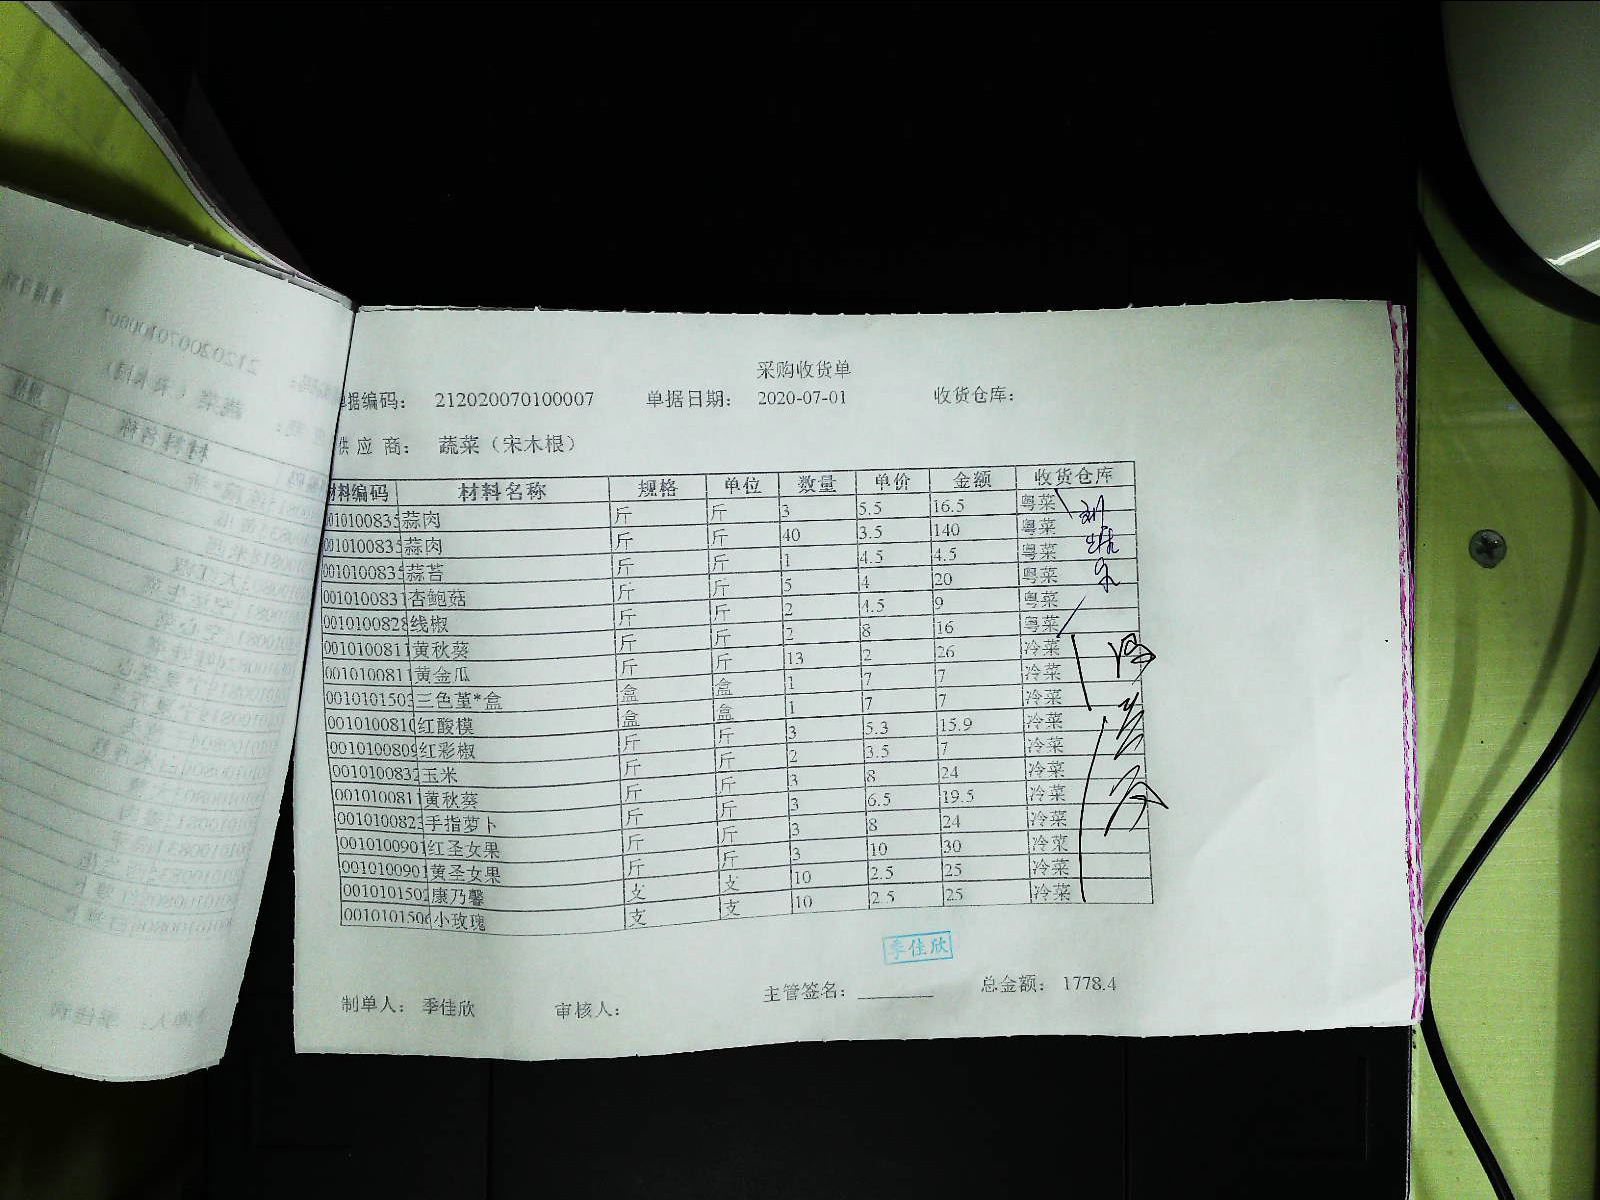 采购收货单
单据编码： 212020070100007 单据日期： 2020-07-01 收货仓库：
供 应 商： 蔬菜（宋木根）
材料编码 材料名称 规格 单位 数量 单价 金额 收货仓库
0010100835 蒜肉 斤 斤 3 5.5 16.5 粤菜
0010100835 蒜肉 斤 斤 40 3.5 140 粤菜
0010100835 蒜苔 斤 斤 1 4.5 4.5 粤菜
0010100831 杏鲍菇 斤 斤 5 4 20 粤菜
0010100828 线椒 斤 斤 2 4.5 9 粤菜
0010100811 黄秋葵 斤 斤 2 8 16 粤菜
0010100811 黄金瓜 斤 斤 13 2 26 冷菜
0010101503 三色堇*盒 盒 盒 1 7 7 冷菜
0010100810 红酸模 盒 盒 1 7 7 冷菜
0010100809 红彩椒 斤 斤 3 5.3 15.9 冷菜
0010100832 玉米 斤 斤 2 3.5 7 冷菜
0010100811 黄秋葵 斤 斤 3 8 24 冷菜
0010100823 手指萝卜 斤 斤 3 6.5 19.5 冷菜
0010100901 红圣女果 斤 斤 3 8 24 冷菜
0010100901 黄圣女果 斤 斤 3 10 30 冷菜
0010101502 康乃馨 支 支 10 2.5 25 冷菜
0010101506 小玫瑰 支 支 10 2.5 25 冷菜
季佳欣
制单人： 季佳欣 审核人： 主管签名： 总金额： 1778.4